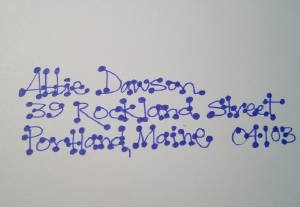 Allie Dawson
39 Rockland Street
Portland, Maine 04103